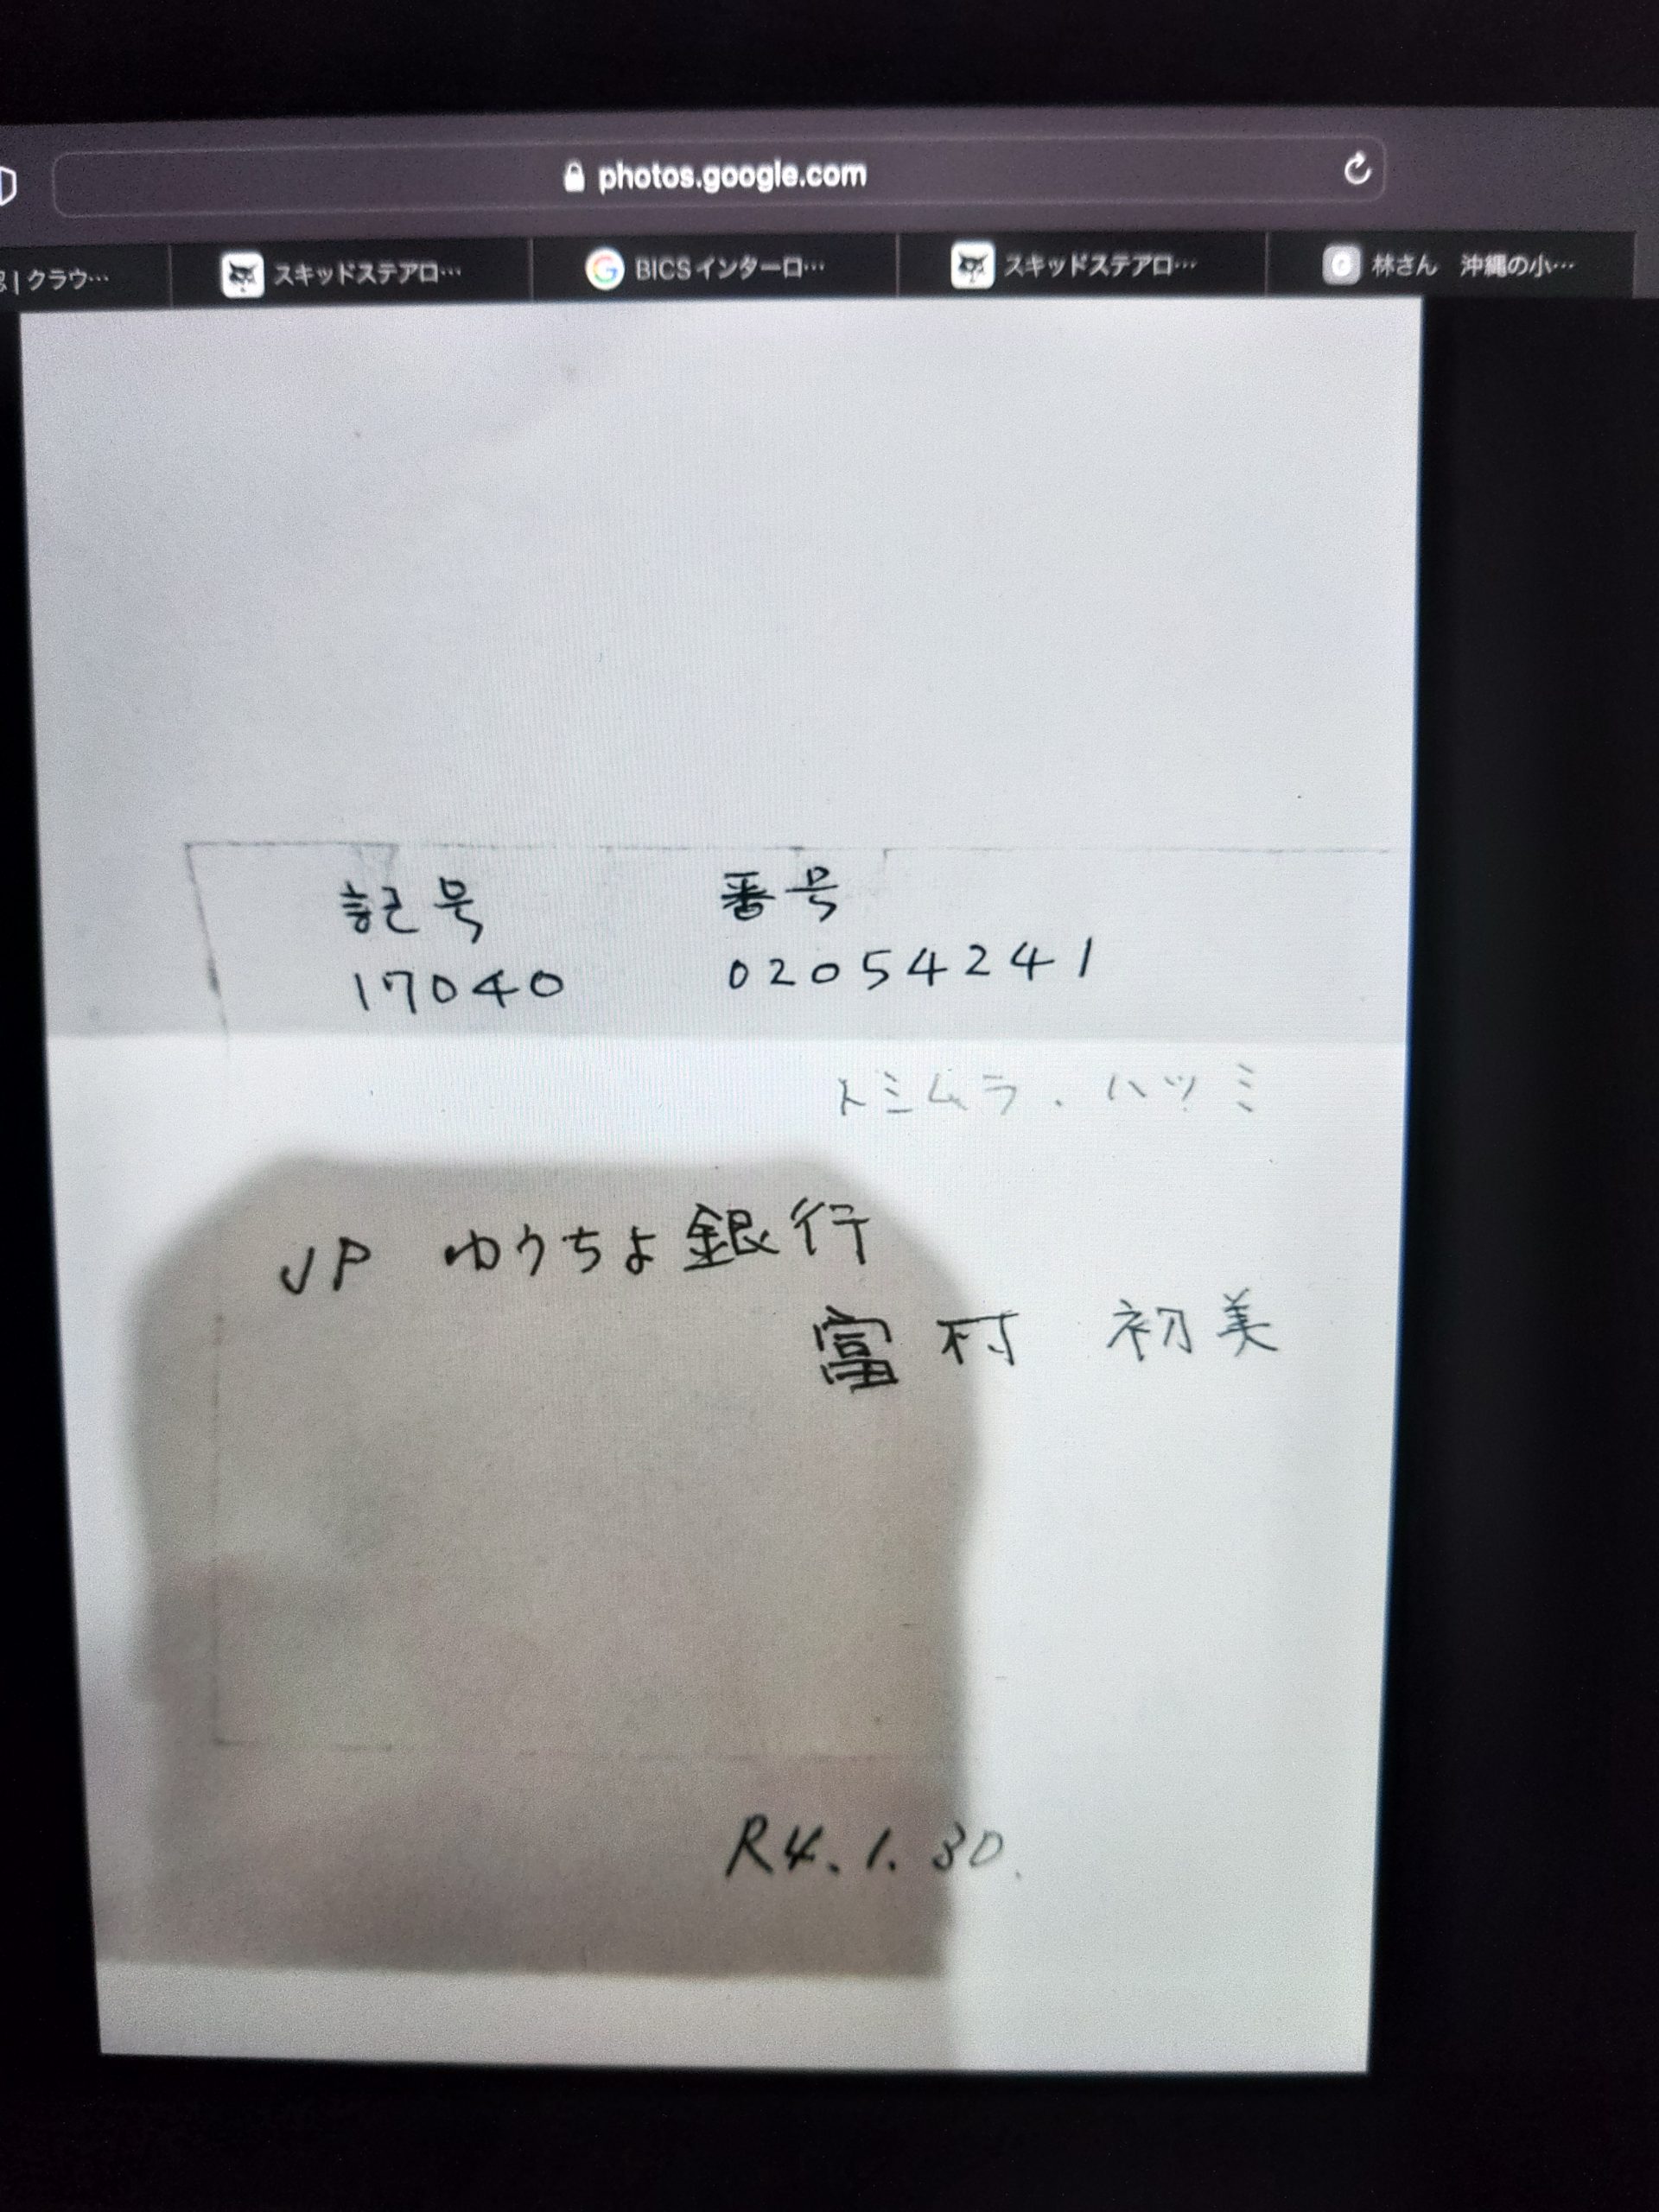 photos.google.com
クラウ…
スキッドステアロ…
BICSインターロ…
スキッドステアロ…
林さん 沖縄の小…
記号 番号
17040 02054241
トミムラ.ハツミ
JP ゆうちよ銀行
富村 初美
R4.1.30.